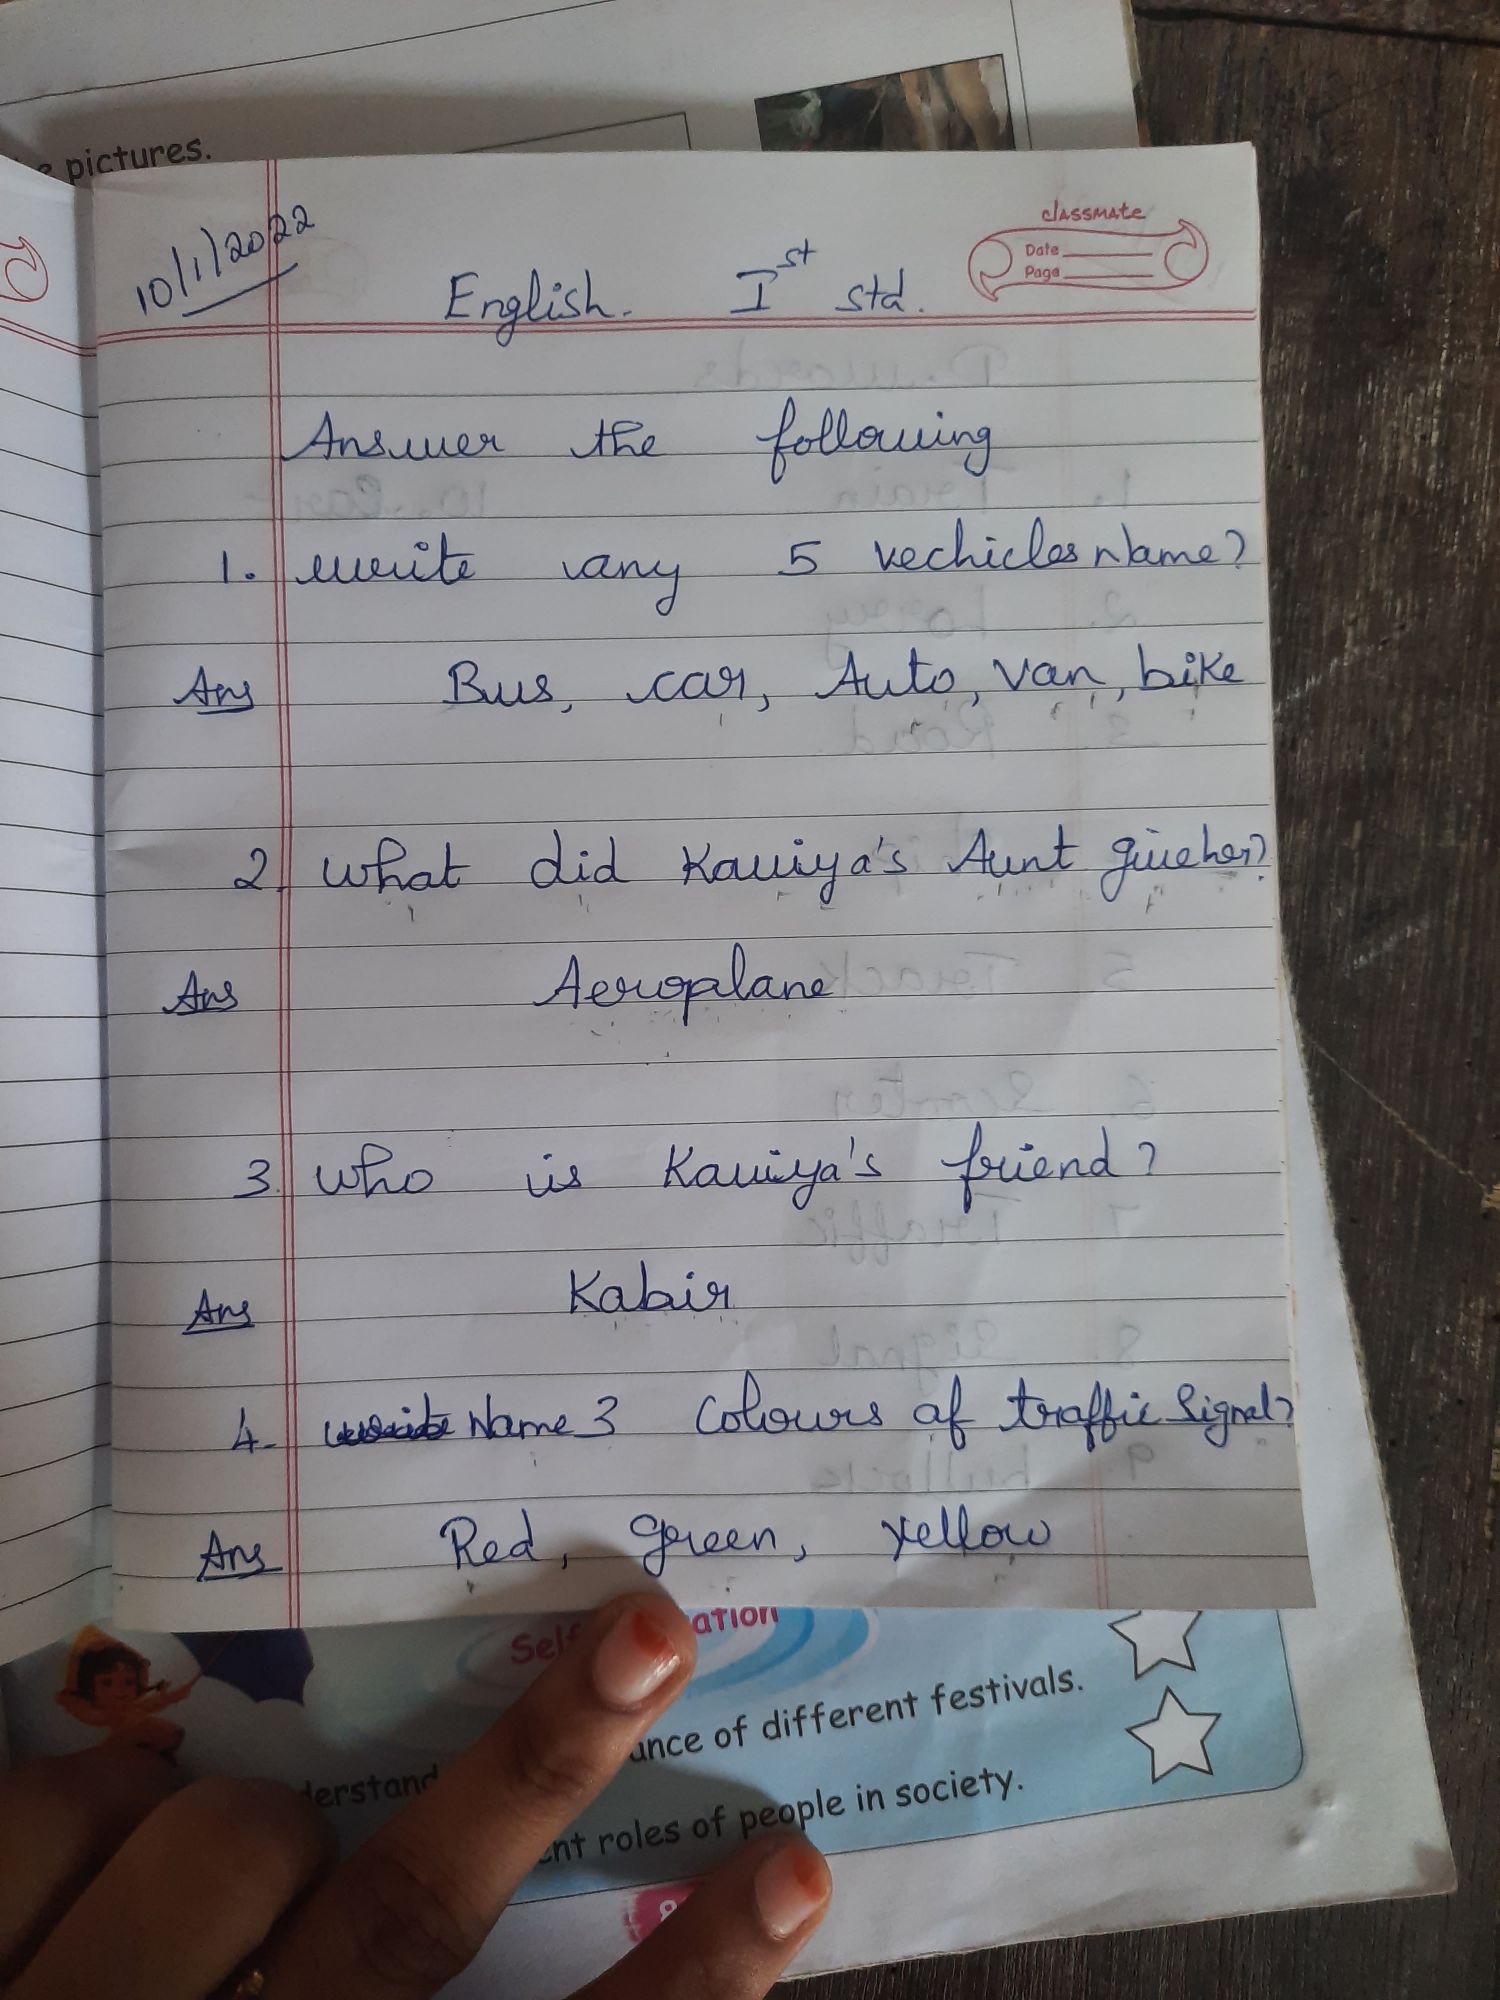 pictures.
classmate
Date
Page
10/1/2022
English. Ist std.
Answer the following
1. write any 5 vechicles Name?
Ans Bus, car, Auto, van, bike
2. what did Kaviya's Aunt give her?
Ans Aeroplane
3. who is Kaviya's friend?
Ans Kabir
4. write Name 3 Colours of traffic Signal?
Ans Red, green, yellow
Self ation
derstand ance of different festivals.
ent roles of people in society.
8